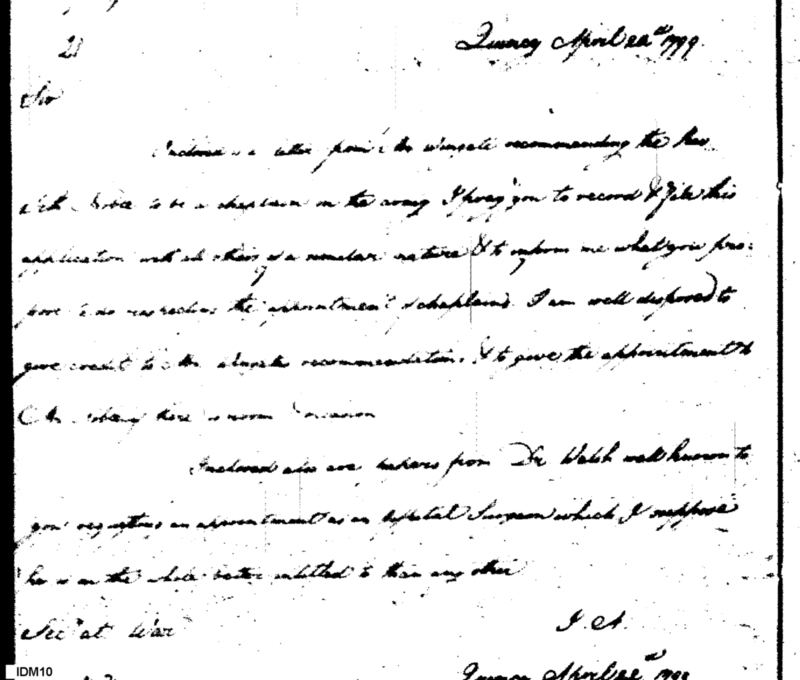 21
Quincy April 22d 1799.
Sir
Inclosed is a letter from Mr recommending the Rev
Noble to be a chaplain in the army I pray you to record & file this
application with all others of a similar nature & to inform me what you pro-
pose to do respecting the appointment of chaplains. I am well disposed to
give credit to Mr recommendation, & to give the appointment to
Mr there is room occasion
Inclosed also are papers from Dr Welsh well known to
you requesting an appointment as an hospital Surgeon which I suppose
he is on the whole better entitled to than any other
Secy at War
J. A.
Quincy April 22d 1799
IDM10